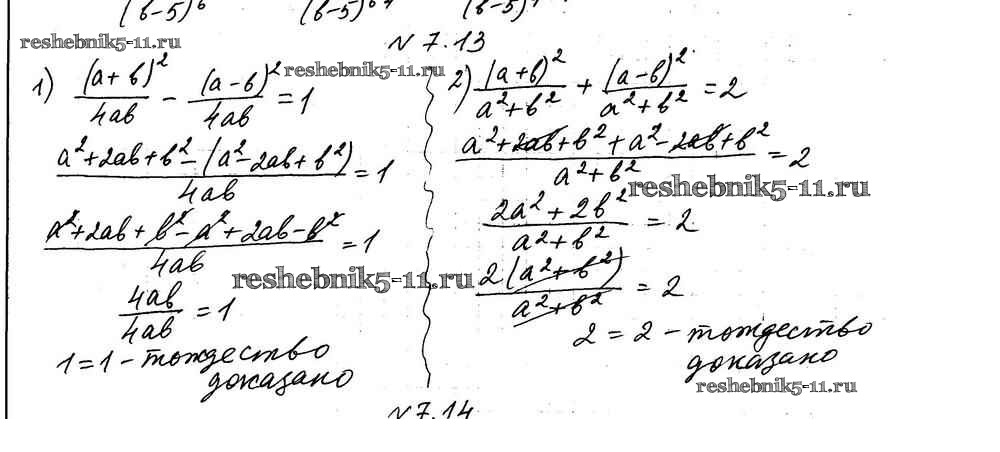 (в-5)⁶ (в-5) (в-5)
reshebnik5-11.ru
N 7.13
1) (a+в)²/4aв - (a-в)²/4aв = 1
reshebnik5-11.ru
(a²+2aв+в²-(a²-2aв+в²))/4aв = 1
(a²+2aв+в²-a²+2aв-в²)/4aв = 1
4aв/4aв = 1
1=1 - тождество
доказано
2) (a+в)²/(a²+в²) + (a-в)²/(a²+в²) = 2
(a²+2aв+в²+a²-2aв+в²)/(a²+в²) = 2
reshebnik5-11.ru
(2a²+2в²)/(a²+в²) = 2
reshebnik5-11.ru
2(a²+в²)/(a²+в²) = 2
2=2 - тождество
доказано
reshebnik5-11.ru
N 7.14